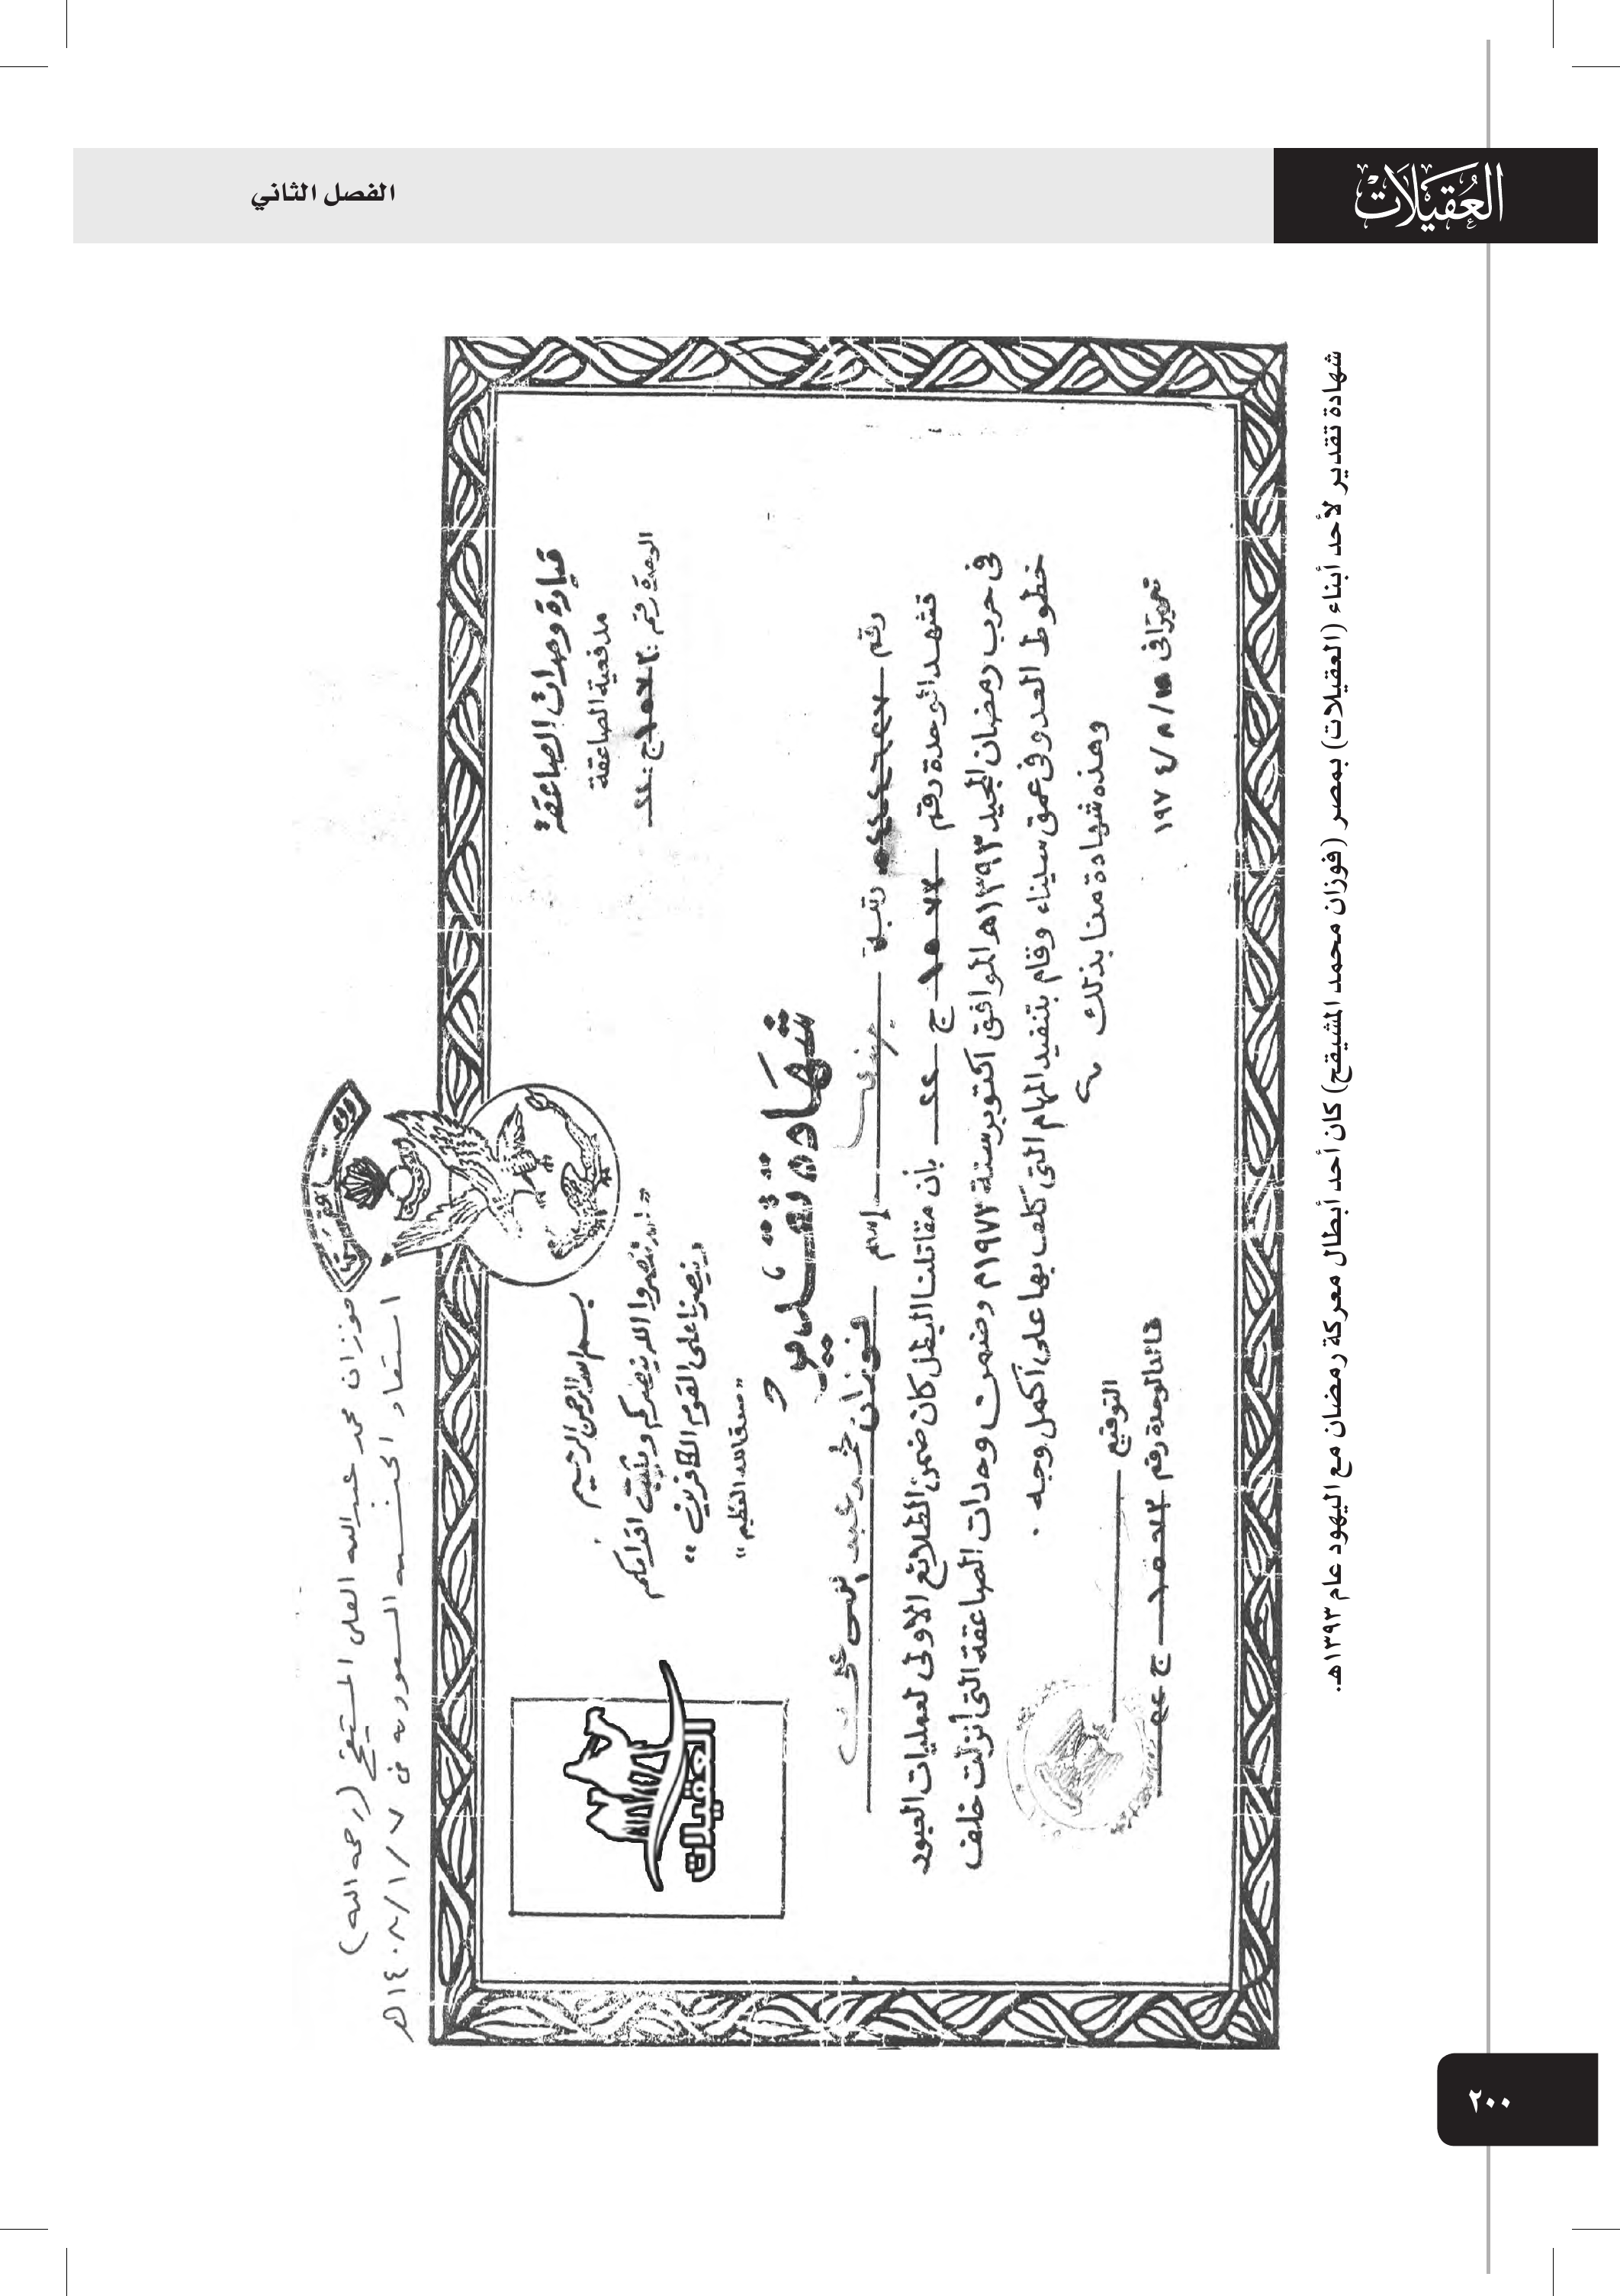 العقيلات
الفصل الثاني
فوزان محمد عبدالله العلي المشيقح (رحمه الله)
استعاد الجنسية السعودية في ١٤٠٨/١/٧هـ
قيادة وحدات الصاعقة
مدفعية الصاعقة
الوحدة رقم
بسم الله الرحمن الرحيم
"إن تنصروا الله ينصركم ويثبت أقدامكم
وينصرنا على القوم الكافرين"
"صدق الله العظيم"
العقيلات
شهادة تقدير
رقم رتبة جندى إسم فوزان محمد عبد
تشهد الوحدة رقم ج بأن مقاتلنا البطل كان ضمن الطلائع الاولى لعمليات العبور
فى حرب رمضان المجيد ١٣٩٣هـ الموافق اكتوبر سنة ١٩٧٣م وضمن وحدات الصاعقة التى أنزلت خلف
خطوط العدو فى عمق سيناء وقام بتنفيذ المهام التى كلف بها على أكمل وجه .
وهذه شهادة منا بذلك
تحريرا فى /٨/١٩٧٤
التوقيع
قائد الوحدة رقم ج
شهادة تقدير لأحد أبناء (العقيلات) بمصر (فوزان محمد المشيقح) كان أحد أبطال معركة رمضان مع اليهود عام ١٣٩٣هـ.
٢٠٠